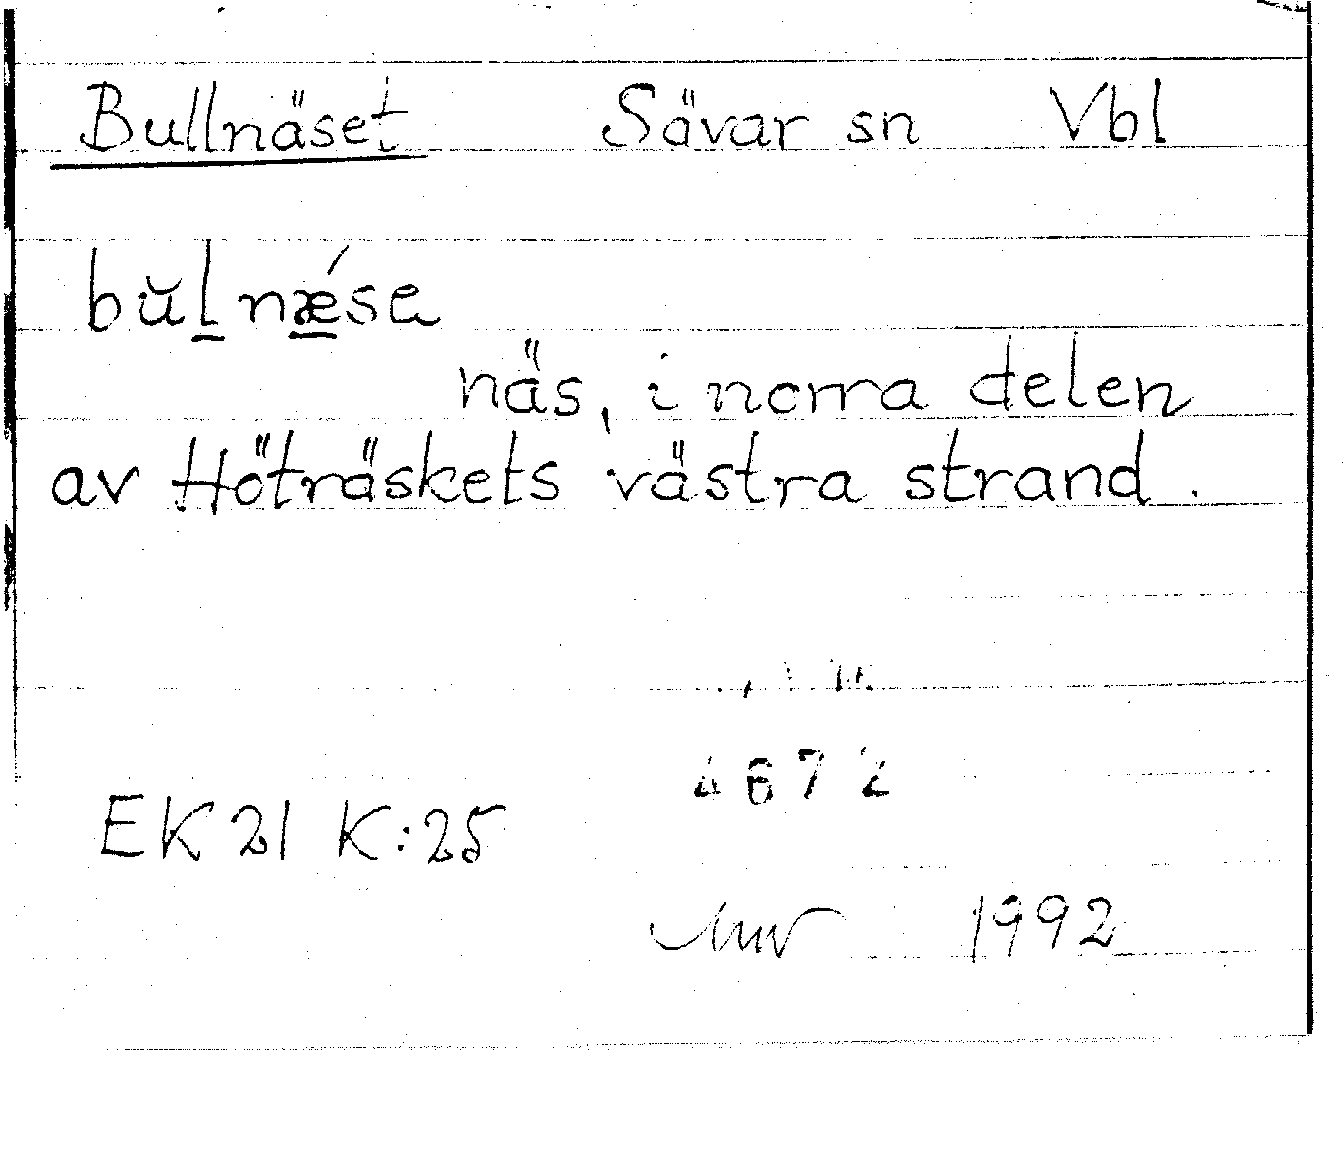 Bullnäset Sävar sn Vbl
bŭl̲nǽ̲sa
näs, i norra delen
av Hötträskets västra strand.
4672
EK 21 K:25
1992